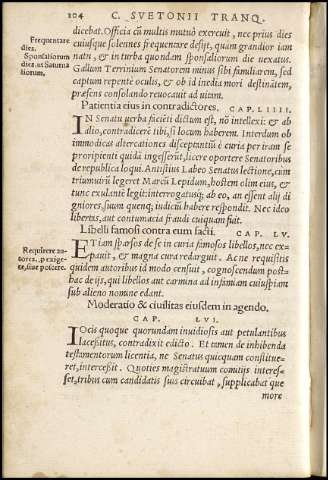 104 C. SVETONII TRANQ.
dicebat. Officia cū multis mutuò exercuit, nec prius dies
Frequentare dies.
cuiusque solennes frequentare desijt, quam grandior iam
natu, & in turba quondam sponsaliorum die uexatus.
Sponsaliorum dies, ut Saturnaliorum.
Gallum Terrinium Senatorem minus sibi familiarem, sed
captum repentè oculis, & ob id inedia mori destinātem,
præsens consolando reuocauit ad uitam.
Patientia eius in contradictores. CAP. LIIII.
IN Senatu uerba faciēti dictum est, nō intellexi: & ab
alio, contradicerē tibi, si locum haberem. Interdum ob
immodicas altercationes disceptantiū è curia per iram se
proripienti quidā ingesserūt, licere oportere Senatoribus
de republica loqui. Antistius Labeo Senatus lectione, cum
triumuirū legeret Marcū Lepidum, hostem olim eius, &
tunc exulantē legit: interrogatusq; ab eo, an essent alij di
gniores, suum quenq; iudiciū habere respondit. Nec ideo
libertas, aut contumacia fraudi cuiquam fuit.
Libelli famosi contra eum facti. CAP. LV.
ETiam sparsos de se in curia famosos libellos, nec ex-
pauit, & magna cura redarguit. Ac ne requisitis
Requirere autores, .p exigere, siue poscere.
quidem autoribus id modo censuit, cognoscendum post-
hac de ijs, qui libellos aut carmina ad infamiam cuiuspiam
sub alieno nomine edant.
Moderatio & ciuilitas eiusdem in agendo.
CAP. LVI.
IOcis quoque quorundam inuidiosis aut petulantibus
lacessitus, contradixit edicto. Et tamen de inhibenda
testamentorum licentia, ne Senatus quicquam constitue-
ret, intercessit. Quoties magistratuum comitijs interes-
set, tribus cum candidatis suis circuibat, supplicabat que
more